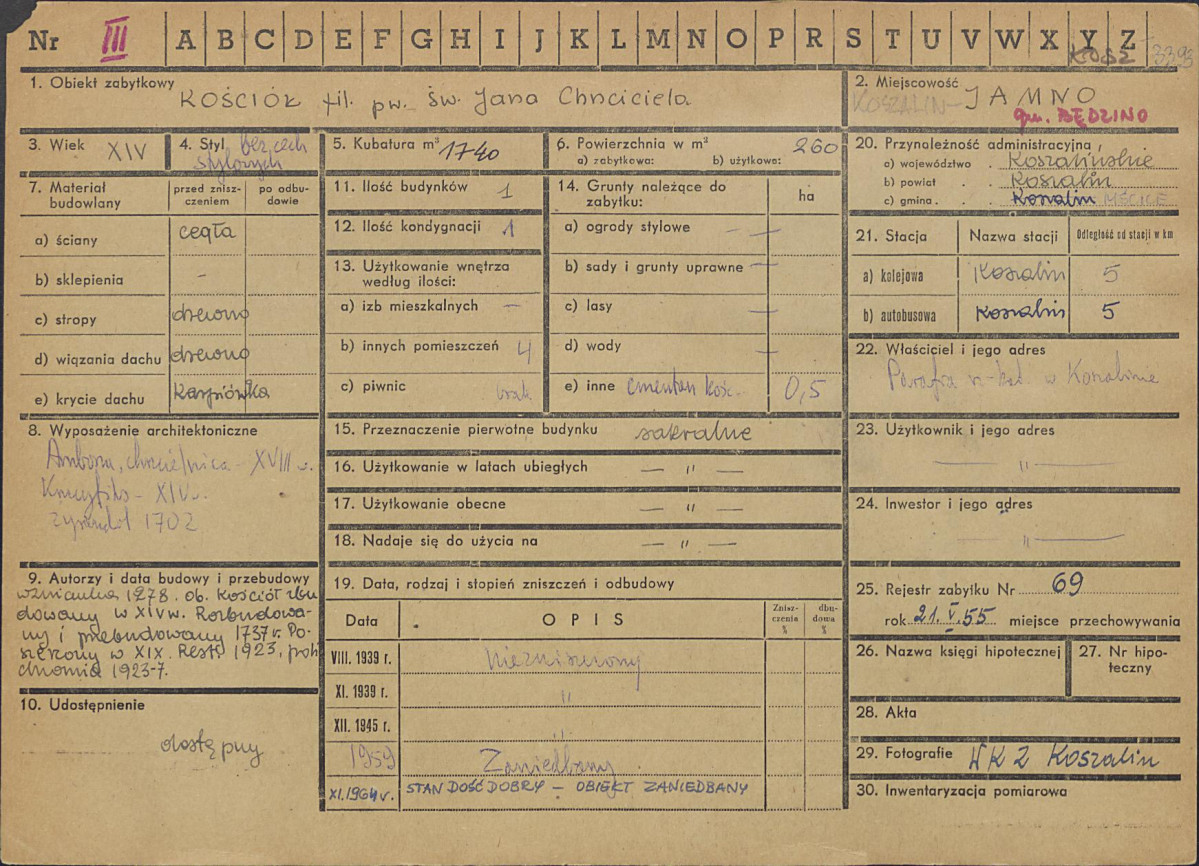 Nr III A B C D E F G H I J K L M N O P R S T U V W X Y Z
KOSZ 3393
1. Obiekt zabytkowy
KOŚCIÓŁ fil. pw. św. Jana Chrzciciela
2. Miejscowość
KOSZALIN - JAMNO
gm. BĘDZINO
3. Wiek XIV
4. Styl bez cech
stylowych
5. Kubatura m³ 1740
6. Powierzchnia w m²
a) zabytkowa: b) użytkowe: 260
7. Materiał budowlany
przed znisz-
czeniem
po odbu-
dowie
a) ściany cegła
b) sklepienia -
c) stropy drewno
d) wiązania dachu drewno
e) krycie dachu karpiówka
8. Wyposażenie architektoniczne
Ambona, chrzcielnica - XVIII w.
Krucyfiks - XIV w.
żyrandol 1702
9. Autorzy i data budowy i przebudowy
wzmianka 1278. Ob. Kościół zbu
dowany w XIV w. Rozbudowa-
ny i przebudowany 1737 r. Po-
szerzony w XIX. Rest. 1923, poli
chromia 1923-7.
10. Udostępnienie
dostępny
11. Ilość budynków 1
12. Ilość kondygnacji 1
13. Użytkowanie wnętrza
według ilości:
a) izb mieszkalnych —
b) innych pomieszczeń 4
c) piwnic brak
14. Grunty należące do
zabytku: ha
a) ogrody stylowe - —
b) sady i grunty uprawne —
c) lasy —
d) wody —
e) inne cmentarz kośc. 0,5
15. Przeznaczenie pierwotne budynku sakralne
16. Użytkowanie w latach ubiegłych — " —
17. Użytkowanie obecne — " —
18. Nadaje się do użycia na — " —
19. Data, rodzaj i stopień zniszczeń i odbudowy
Data OPIS
Znisz-
czenia
%
dbu-
dowa
%
VIII. 1939 r. Niezniszczony
XI. 1939 r. "
XII. 1945 r.
1959 Zaniedbany
XI.1964 r. STAN DOŚĆ DOBRY – OBIEKT ZANIEDBANY
20. Przynależność administracyjna
a) województwo . Koszalińskie
b) powiat . . Koszalin
c) gmina . . Koszalin MŚCICE
21. Stacja Nazwa stacji Odległość od stacji w km
a) kolejowa Koszalin 5
b) autobusowa Koszalin 5
22. Właściciel i jego adres
Parafia rz-kat. w Koszalinie
23. Użytkownik i jego adres
— " —
24. Inwestor i jego adres
— " —
25. Rejestr zabytku Nr 69
rok 21. V. 55 miejsce przechowywania
26. Nazwa księgi hipotecznej
27. Nr hipo-
teczny
28. Akta
29. Fotografie WKZ Koszalin
30. Inwentaryzacja pomiarowa